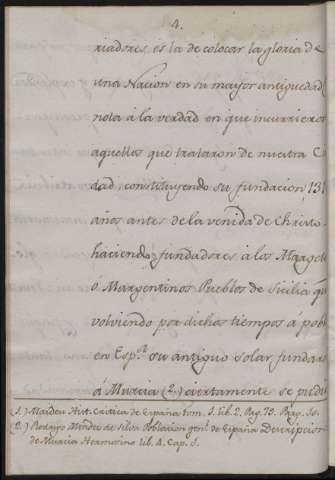 4.
riadores es la de colocar la gloria de
una Nacion en su mayor antiguedad
nota à la verdad en que incurrieron
aquellos que trataron de nuestra Ciu
dad, constituyendo su fundacion, 131
años antes de la venida de Christo
haciendo fundadores à los Margetes
ó Margentinos Pueblos de Sicilia que
volviendo por dichos tiempos á pobl
en Esp.ª su antiguo solar fundar
á Murcia (2.) ciertamente se pudi
(1.) Masdeu Hist. Critica de España tom. 3. lib. 2. Pag. 73.
(2.) Rodrigo Mendez de Silva Poblacion genl. de España Descripcion
de Murcia Hermosino lib. 4. Cap. 1.